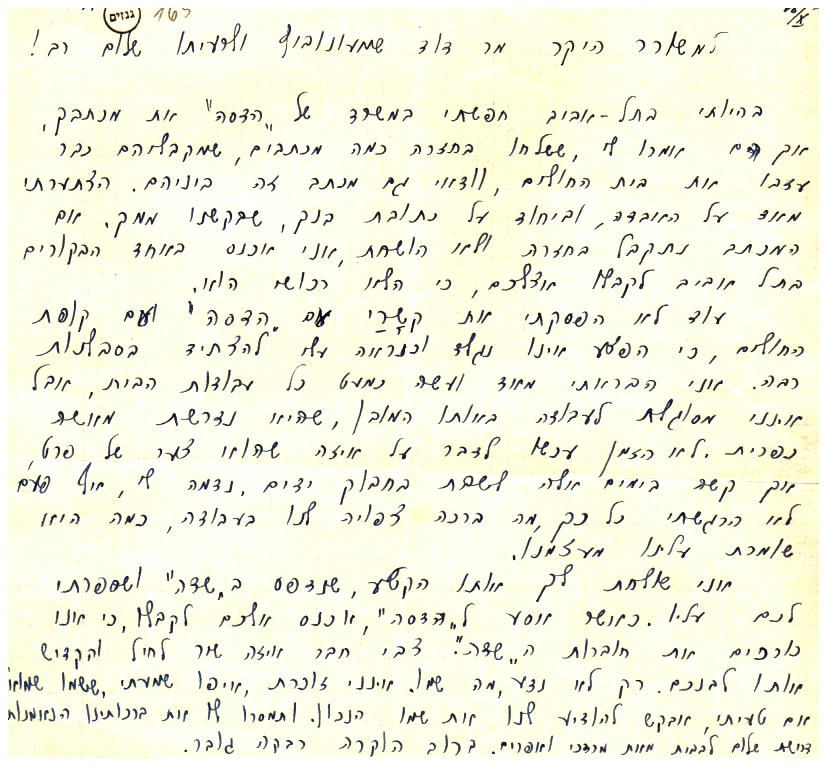 גנזים
165
למשורר היקר מר דוד שמעונוביץ ולרעיתו שלום רב!
בהיותי בתל-אביב חפשתי במשרד של "הדסה" את מכתבך,
אך הם אמרו לי, ששלחו בחזרה כמה מכתבים, שמקבליהם כבר
עזבו את בית החולים, וודאי גם מכתב זה ביניהם. הצתערתי
מאוד על האובדה, וביחוד על כתובת בנך, שבקשנו ממך. אם
המכתב נתקבל בחזרה ולא הושחת, אני אכנס באחד הבקורים
בתל אביב לקבלו אצלכם, כי הלא רכושי הוא.
עוד לא הפסקתי את קשרי עם "הדסה" ועם קופת
החולים, כי הפצע אינו נגלד וכנראה עלי להצתיד בסבלנות
רבה. אני הבראתי מאוד ועושה כמעט כל עבודות הבית, אבל
אינני מסוגלת לעבודה באותו המובן, שהיא נדרשת מאשה
כפרית. לא הזמן עכשו לדבר על איזה שהוא צער של פרט,
אך קשה בימים אלה לשבת בחבוק ידים. נדמה לי, אף פעם
לא הרגשתי כל כך, מה ברכה צפויה לנו בעבודה, כמה היא
שומרת עלינו מעצמנו.
אני שולחת לך אותו הקטע, שנדפס ב"שדה" ושספרתי
לכם עליו. כאשר אסע ל"הדסה", אכנס אליכם לקבלו, כי אנו
כורכים את חוברות ה"שדה". צבי חבר איזה שיר לחיל והקדיש
אותו לבנכם. רק לא נדע, מה שמו. אינני זוכרת, איפו שמעתי, ששמו שמואל
אם טעיתי, אבקש להודיע לנו את שמו הנכון. ותמסרו לו את ברכותינו הנאמנות
דרישת שלום לבבית מאת מרדכי ואפרים. ברוב הוקרה רבקה גובר.